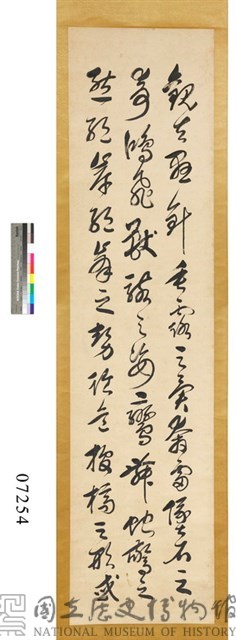 觀夫懸針垂露之異奔雷墜石之
奇鴻飛獸駭之姿鸞舞蛇驚之
態絕岸頹峯之勢臨危據槁之形或
07254
國立歷史博物館
NATIONAL MUSEUM OF HISTORY